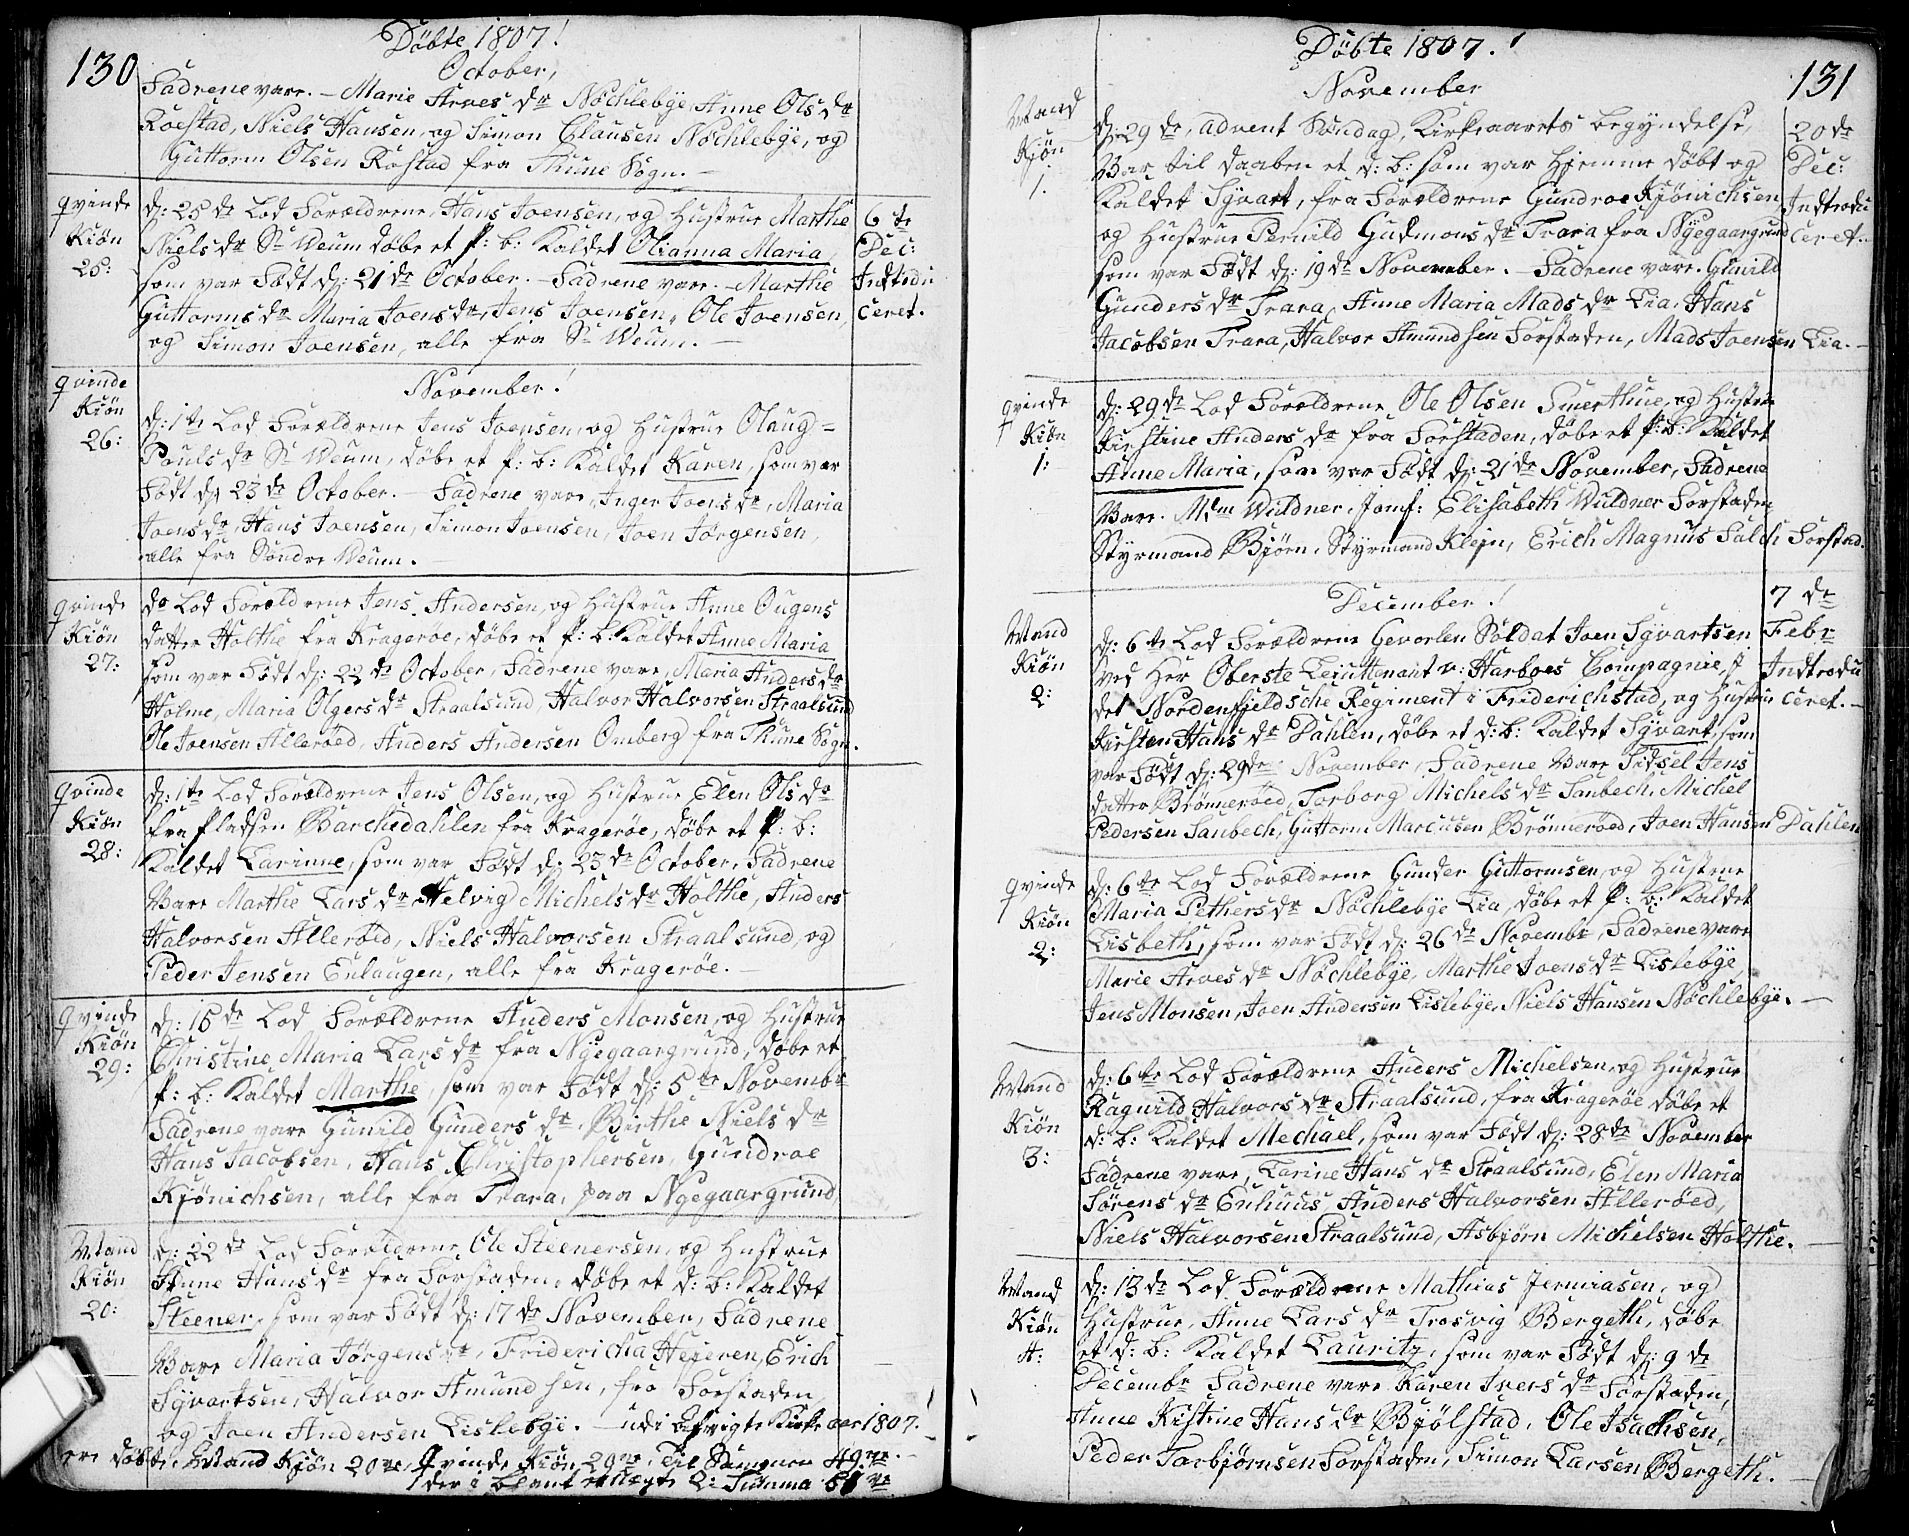 130
Döbte 1807!
October,
Fadrene vare. – Marie Arves dr Nöchlebÿe, Anne Ols dr
Roestad, Niels Hansen, og Simon Clausen Nöchlebÿe, og
Guttorm Olsen Rostad fra Thune Sogn. –
qvinde
Kiön
25:
d: 25 de Lod Forældrene, Hans Joensen, og Hustrue Marthe
Niels dr Sr Weum döbe et p: b: Kaldet Olianna Maria
som var Födt d: 21 de October. – Fadrene vare. – Marthe
Guttorms dr Maria Joens dr, Jens Joensen, Ole Joensen,
og Simon Joensen, alle fra Sr Weum. –
6 te
Dec:
Indtrodu
ceret.
November!
qvinde
Kiön
26:
d: 1 te Lod Forældrene Jens Joensen, og Hustrue Olaug =
Pouls dr Sr Weum, döbe et p: b: Kaldet Karen, som var
Födt d: 23 de October. – Fadrene vare, Inger Joens dr, Maria
Joens dr, Hans Joensen, Simon Joensen, Joen Jörgensen,
alle fra Söndre Weum. –
qvinde
Kiön
27:
do Lod Forældrene Jens Andersen, og Hustrue Anne Ougens
datter Holthe fra Kragerøe, döbe et p: b: Kaldet Anne Maria
som var Födt d: 22 de October, Fadrene vare, Maria Anders dr
Holme, Maria Olgers dr Straalsund, Halvor Halvorsen Straalsund
Ole Joensen Alleröed, Anders Andersen Omberg fra Thune Sogn.
qvinde
Kiön
28:
d: 1 te Lod Forældrene Jens Olsen, og Hustrue Elen Ols dr
fra Pladsen Barchedahlen fra Kragerøe, döbe et p: b:
Kaldet Larinne, som var Födt d: 23 de October, Fadrene
Vare Marthe Lars dr Helvig Michels dr Holthe, Anders
Halvorsen Alleröed, Niels Halvorsen Straalsund, og
Peder Jensen Enhaugen, alle fra Kragerøe. –
qvinde
Kiön
29:
d: 15 de Lod Forældrene Anders Monsen, og Hustrue
Christine Maria Lars dr fra Nÿegaargrund, döbe et
p: b: Kaldet Marthe, som var Födt d: 5 te Novembr
Fadrene vare Gunild Gunders dr, Birthe Niels dr
Hans Jacobsen, Hans Christophersen, Gundroe
Kjönichsen, alle fra Trara, paa Nÿegaargrund
Mand
Kiön
20:
d: 22 de Lod Forældrene, Ole Steenersen, og Hustrue
Anne Hans dr fra Forstaden, döbe et d: b: Kaldet
Steener, som var Födt d: 17 de November, Fadrene
Vare Maria Jörgens dr, Fridericha Hejeren, Erich
Sÿvartsen, Halvor Amundsen, fra Forstaden
og Joen Andersen Lislebÿe. – udi afvigte Kirke aar 1807.
ere döbte, Mand Kjön 20 ve, Qvinde Kiön 29 ve, Til Sammen 49 ve. –
der i blant Uægte 2: Summa 51 ve
131
Döbte 1807!
November
Mand
Kjön
1.
d: 29 de, advent Söndag, Kirkeaarets begyndelse,
Var til daaben et d: b: som var Hjemme döbt og
Kaldet Sÿvart, fra Forældrene Gundroe Kjönichsen,
og Hustrue Pernild Gudmons dr Trara fra Nÿegaargrund
som var Födt d: 19 de November. – Fadrene vare. Gunild
Gunders dr Trara, Anne Maria Mads dr Lia, Hans
Jacobsen Trara, Halvor Amundsen Forstaden, Mads Joensen Lia. –
20 de
Dec:
Indtrodu
ceret.
qvinde
Kiön
1:
d: 29 de Lod Forældrene Ole Olsen Smerthue, og Hustrue
Kirstine Anders dr fra Forstaden, döbe et p: b: Kaldet
Anne Maria, som var Födt d: 21 de November, Fadrene
Vare. Mdm Wüldner, Jomf: Elisabeth Wuldner Forstaden
Stÿrmand Björn, Stÿrmand Klejn, Erich Magnus Falch Forstad.
December!
Mand
Kiön
2:
d: 6 te Lod Forældrene Gevorben Soldat Joen Sÿvartsen
ved Her Oberste Leiuttenant v: Harboes Compagnie, i
det Nordenfieldsche Regiment i Friderichstad, og Hustrue
Kirsten Hans dr Dahlen, döbe et d: b: Kaldet Sÿvart, som
var Födt d: 29 de November, Fadrene Vare Sidsel Jens
datter Brönneröed, Torborg Michels dr Saubech, Michel
Pedersen Saubech, Guttorm Marcusen Brönneröed, Joen Hansen Dahlen
7 de
Febr
Indtrodu
ceret. –
qvinde
Kiön
2:
d: 6 te Lod Forældrene Gunder Guttormsen, og Hustrue
Maria Pethers dr Nöchlebÿe Lia, döbe et p: b: Kaldet
Lisbeth, som var Födt d: 26 de Novembr, Fadrene vare
Marie Arves dr Nöchlebÿe, Marthe Joens dr Lislebÿe,
Jens Monsen, Joen Andersen Lislebÿe, Niels Hansen Nöchlebÿe. –
Mand
Kiön
3:
d: 6 te Lod Forældrene Anders Michelsen, og Hustrue
Ragnild Halvors dr Straalsund, fra Kragerøe döbe et
d: b: Kaldet Mechael, som var Födt d: 28 de November
Fadrene vare, Karine Hans dr Straalsund, Elen Maria
Sörens dr Enhuus, Anders Halvorsen Alleröed,
Niels Halvorsen Straalsund, Asbjörn Michelsen Holthe. –
Mand
Kiön
4:
d: 13 de Lod Forældrene Mathias Jermiasen, og
Hustrue, Anne Lars dr Trosvig Bergeth, döbe
et d: b: Kaldet Lauritz, som var Födt d: 9 de
Decembr Fadrene vare Karen Ivers dr Forstaden,
Anne Kistine Hans dr Bjölstad, Ole Isachsen,
Peder Torbjörnsen Forstaden, Simon Larsen Bergeth. –